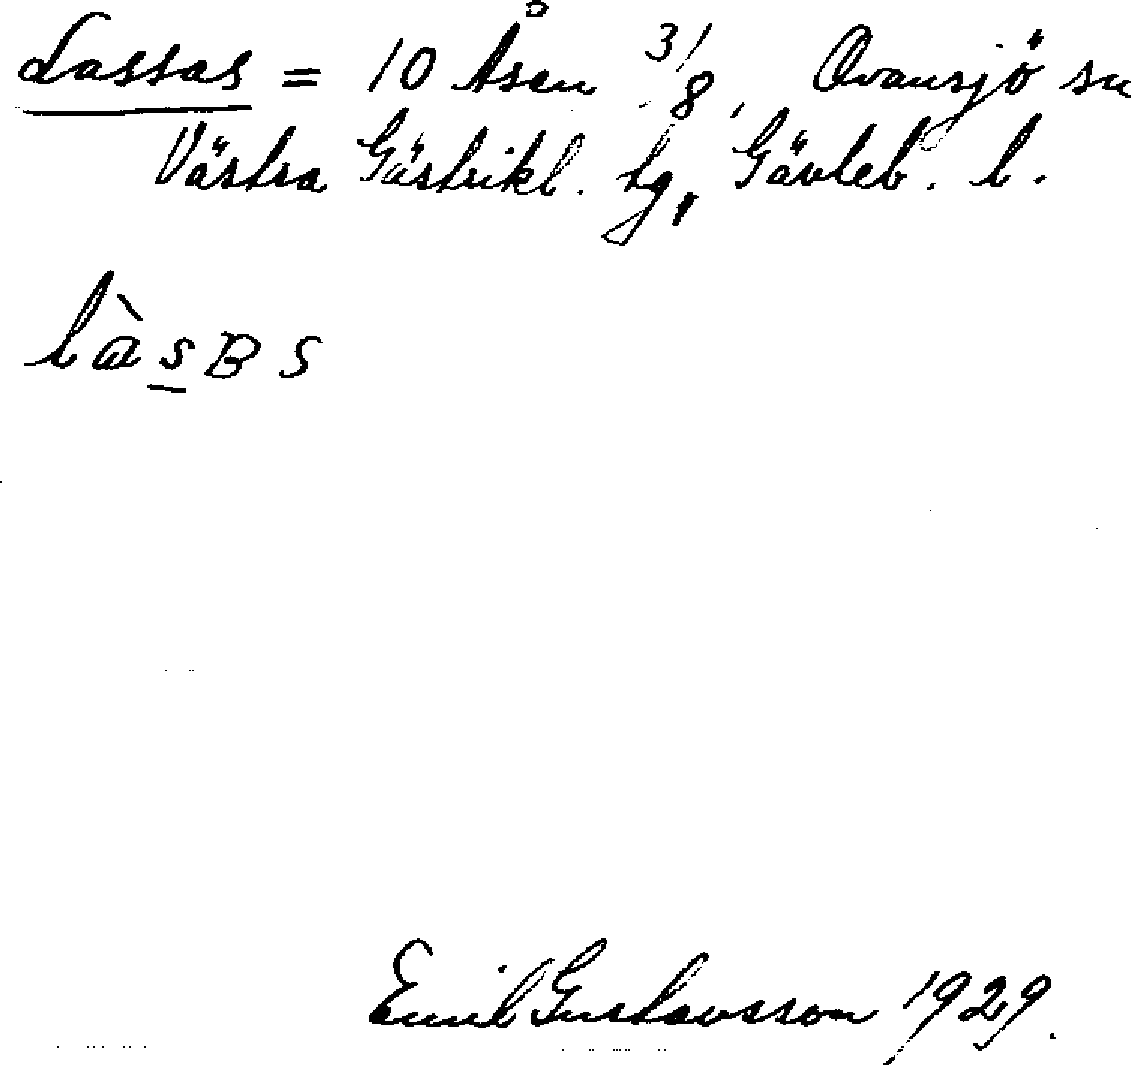 Lassas = 10 Åsen 3/8, Ovansjö sn
Västra Gästrikl. tg, Gävleb. l.
làsBS
Emil Gustavsson 1929.